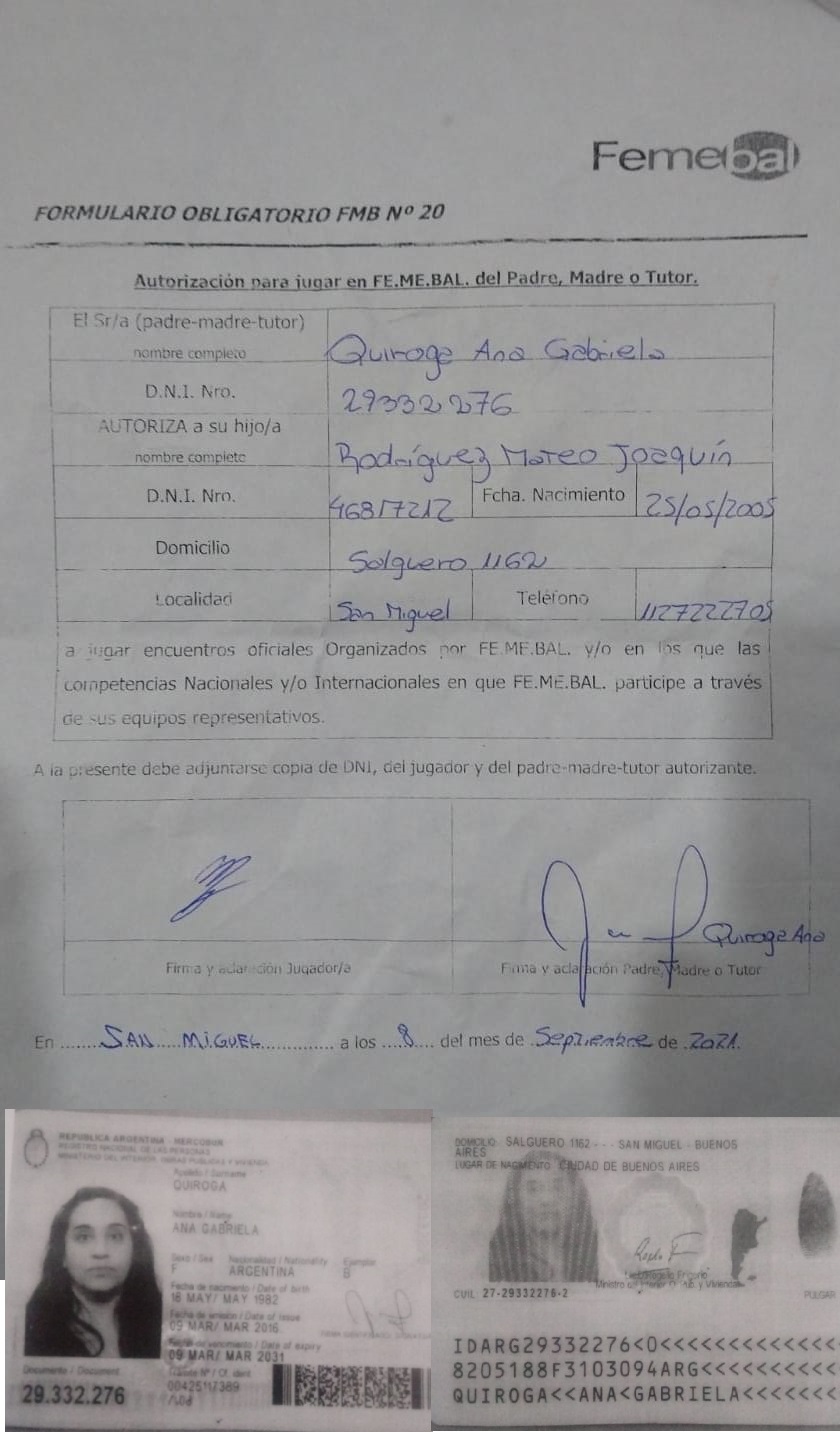 Femebal
FORMULARIO OBLIGATORIO FMB Nº 20
Autorización para jugar en FE.ME.BAL. del Padre, Madre o Tutor.
El Sr/a (padre-madre-tutor)
nombre completo Quiroga Ana Gabriela
D.N.I. Nro. 29332276
AUTORIZA a su hijo/a
nombre completo Rodríguez Mateo Joaquín
D.N.I. Nro. 46817212 Fcha. Nacimiento 25/05/2005
Domicilio Salguero 1162
Localidad San Miguel Teléfono 1127222705
a jugar encuentros oficiales Organizados por FE.ME.BAL. y/o en los que las
competencias Nacionales y/o Internacionales en que FE.ME.BAL. participe a través
de sus equipos representativos.
A la presente debe adjuntarse copia de DNI, del jugador y del padre-madre-tutor autorizante.
Quiroga Ana
Firma y aclaración Jugador/a Firma y aclaración Padre, Madre o Tutor
En ....... SAN MIGUEL ............. a los ...8.... del mes de Septiembre de 2021.
REPUBLICA ARGENTINA - MERCOSUR
REGISTRO NACIONAL DE LAS PERSONAS
MINISTERIO DEL INTERIOR, OBRAS PUBLICAS Y VIVIENDA
Apellido / Surname
QUIROGA
Nombre / Name
ANA GABRIELA
Sexo / Sex Nacionalidad / Nationality Ejemplar
F ARGENTINA B
Fecha de nacimiento / Date of birth
18 MAY/ MAY 1982
Fecha de emisión / Date of issue
09 MAR/ MAR 2016
Fecha de vencimiento / Date of expiry
09 MAR/ MAR 2031
Documento / Document Trámite Nº / Of. ident.
29.332.276 00425117389
DOMICILIO: SALGUERO 1162 - - - SAN MIGUEL - BUENOS
AIRES
LUGAR DE NACIMIENTO: CIUDAD DE BUENOS AIRES
Rogelio Frigerio
Ministro del Interior, O. Púb. y Vivienda
CUIL 27-29332276-2 PULGAR
IDARG29332276<0<<<<<<<<<<<<<<
8205188F3103094ARG<<<<<<<<<<
QUIROGA<<ANA<GABRIELA<<<<<<<